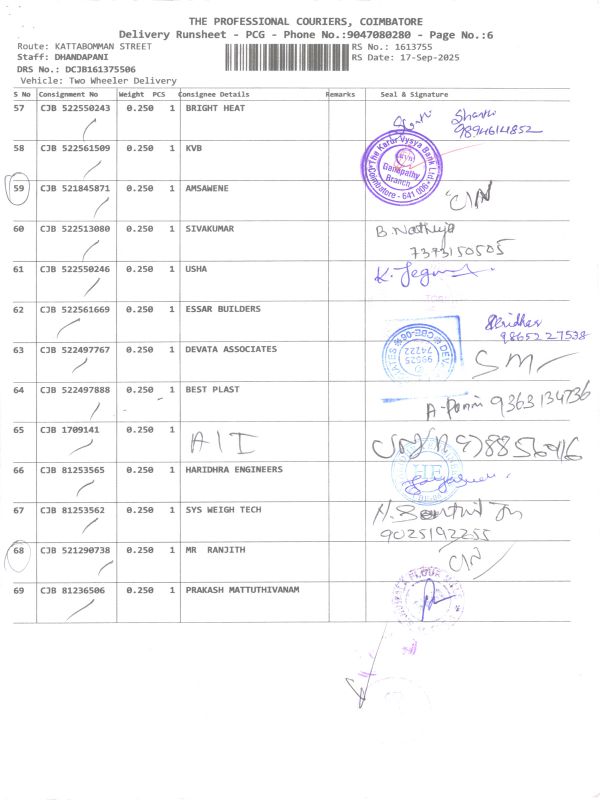 THE PROFESSIONAL COURIERS, COIMBATORE
Delivery Runsheet - PCG - Phone No.:9047080280 - Page No.:6
Route: KATTABOMMAN STREET
RS No.: 1613755
Staff: DHANDAPANI
RS Date: 17-Sep-2025
DRS No.: DCJB161375506
Vehicle: Two Wheeler Delivery
S No Consignment No Weight PCS Consignee Details Remarks Seal & Signature
57 CJB 522550243 0.250 1 BRIGHT HEAT
9894614852
58 CJB 522561509 0.250 1 KVB
The Karur Vysya Bank Ltd.
Ganapathy
Branch
Coimbatore - 641 006
59 CJB 521845871 0.250 1 AMSAWENE
C/N
60 CJB 522513080 0.250 1 SIVAKUMAR
7373150505
61 CJB 522550246 0.250 1 USHA
62 CJB 522561669 0.250 1 ESSAR BUILDERS
Sridhar
9865227538
63 CJB 522497767 0.250 1 DEVATA ASSOCIATES
64 CJB 522497888 0.250 1 BEST PLAST
9363134736
65 CJB 1709141 0.250 1 A I I
66 CJB 81253565 0.250 1 HARIDHRA ENGINEERS
HE
67 CJB 81253562 0.250 1 SYS WEIGH TECH
9025192255
68 CJB 521290738 0.250 1 MR RANJITH
C/N
69 CJB 81236506 0.250 1 PRAKASH MATTUTHIVANAM